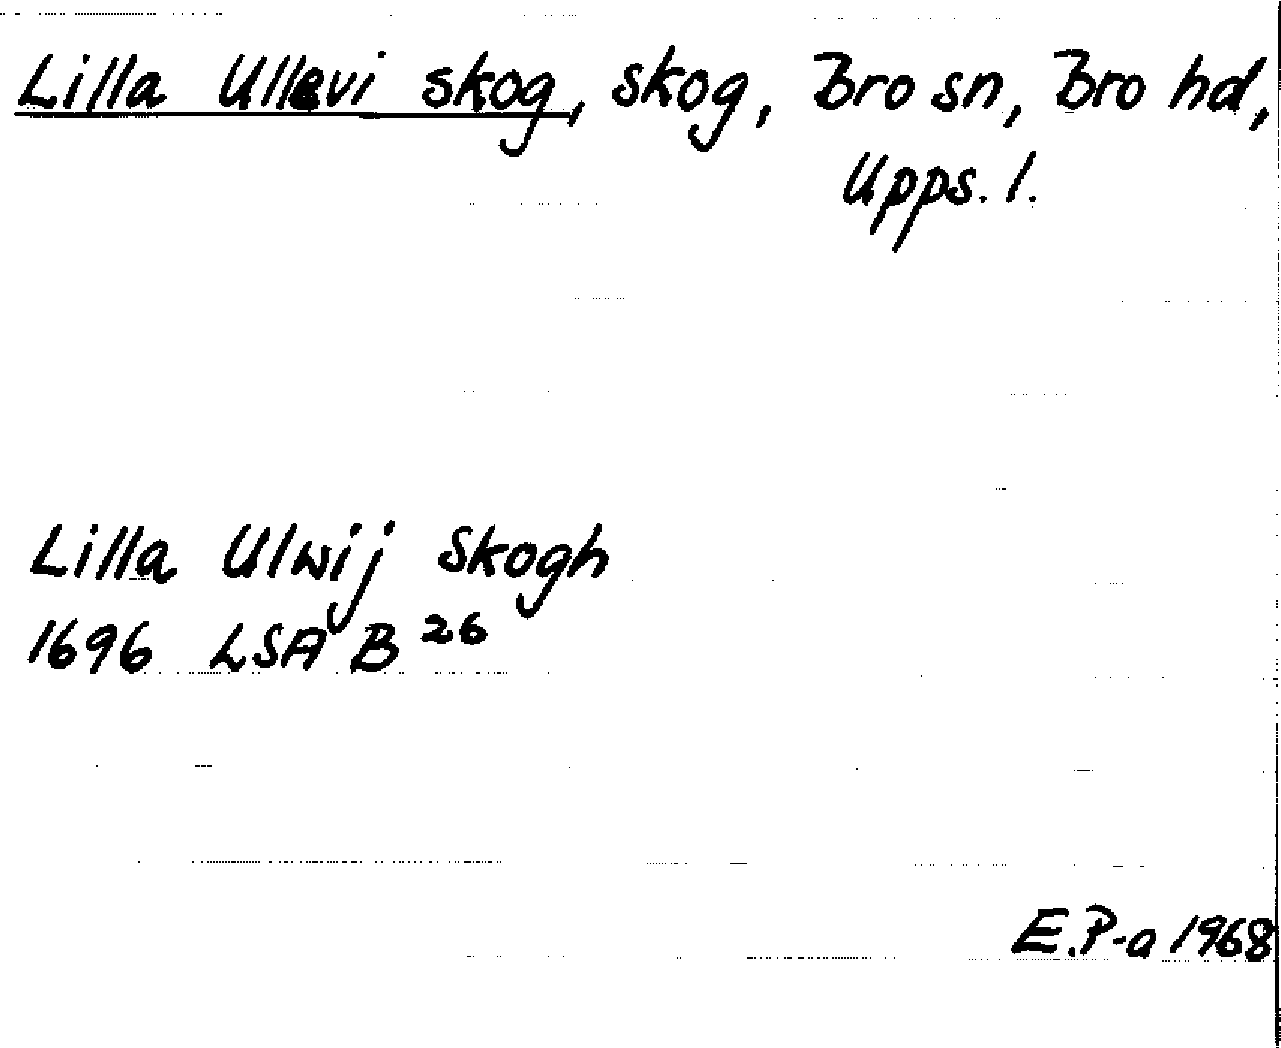 Lilla Ullevi skog, skog, Bro sn, Bro hd,
Upps. l.
Lilla Ulwij Skogh
1696 LSA B 26
E.P-a 1968